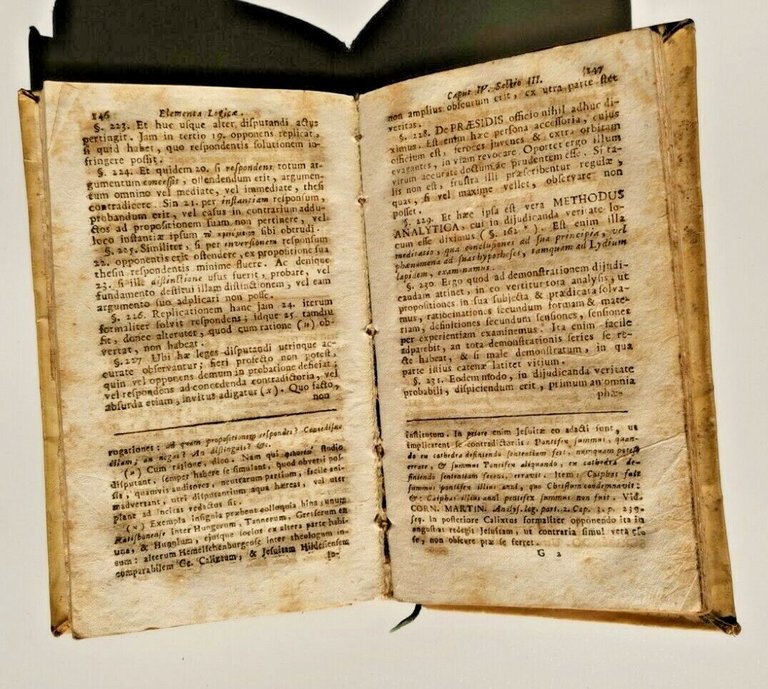 146 Elementa Logicæ.
§. 223. Et huc usque alter disputandi actus
pertingit. Jam in tertio 19. opponens replicat,
si quid habet, quo respondentis solutionem in-
fringere possit.
§. 224. Et quidem 20. si respondens totum ar-
gumentum concessit, ostendendum erit, argumen-
tum omnino vel mediate, vel immediate, thesi
contradicere. Sin 21. per instantiam responsum,
probandum erit, vel casus in contrarium addu-
ctos ad propositionem suam non pertinere, vel
loco instantiæ ipsum sibi obtrudi.
§. 225. Similiter, si per inversionem responsum
22. opponentis erit ostendere, ex propositione sua
thesin respondentis minime fluere. Ac denique
23. si ille distinctione usus fuerit, probare, vel
fundamento destitui illam distinctionem, vel eam
argumento suo adplicari non posse.
§. 226. Replicationem hanc jam 24. iterum
formaliter solvit respondens; idque 25. tamdiu
fit, donec alteruter, quod cum ratione (u) ob-
vertat, non habeat.
§. 227 Ubi hæ leges disputandi utrinque ac-
curate observantur; fieri profecto non potest,
quin vel opponens demum in probatione deficiat;
vel respondens ad concedenda contradictoria, vel
absurda etiam, invitus adigatur (x). Quo facto,
non
rogationes: Ad quam propositionem respondes? Concedisne
illam, an negas? An distinguis? &c.
(u) Cum ratione, dico. Nam qui studio
disputant, semper habere se simulant, quod obversi pos-
sit, quamvis auditores, neutrarum partium, facile ani-
madvertant, utri disputantium aqua hæreat, vel uter
plane ad incitas redactus sit.
(x) Exempla insignia præbent colloquia bina, unum
Ratisbonense inter Hungerum, Tannerum, Gretserum ex
una, & Hunnium, ejusque socios ex altera parte habi-
tum: alterum Hemelschenburgense inter theologum in-
comparabilem Ge. Calixtum, & Jesuitam Hildesiensem
Caput IV. Sectio III. 147
non amplius obscurum erit, ex utra parte stet
veritas.
§. 228. De PRÆSIDIS officio nihil adhuc di-
ximus. Est enim hæc persona accessoria, cujus
officium est, feroces juvenes & extra orbitam
evagantes, in viam revocare. Oportet ergo illum
virum accurate doctum ac prudentem esse. Si ta-
lis non est, frustra illi præscribentur regulæ,
quas, si vel maxime vellet, observare non
posset.
§. 229. Et hæc ipsa est vera METHODUS
ANALYTICA, cui in dijudicanda veritate lo-
cum esse diximus (§. 162 *). Est enim illa
meditatio, qua conclusiones ad sua principia, vel
phænomena ad suas hypotheses, tamquam ad Lydium
lapidem, examinamus.
§. 230. Ergo quod ad demonstrationem dijudi-
caudam attinet, in eo vertitur tota analysis, ut
propositiones in sua subjecta & prædicata solva-
mus, ratiocinationes secundum formam & mate-
riam, definitiones secundum sensiones, sensiones
per experientiam examinemus. Ita enim facile
adparebit, an tota demonstrationis series se re-
cte habeat, & si male demonstratum, in qua
parte illius catenæ latitet vitium.
§. 231. Eodem modo, in dijudicanda veritate
probabili, dispiciendum erit, primum an omnia
phæ-
institutum. In priore enim Jesuitæ eo adacti sunt, ut
implicarent se contradictoriis: Pontifex summus, quan-
do ex cathedra definiendo sententiam fert, nunquam potest
errare, & summus Pontifex aliquando, ex cathedra de-
finiendo sententiam ferens, erravit. Item: Caiphas fuit
summus pontifex illius anni, quo Christum condemnavit:
& Caiphas illius anni pontifex summus non fuit. Vid.
CORN. MARTIN. Analys. log. part. 2. Cap. 3. p. 239.
seq. In posteriore Calixtus formaliter opponendo ita in
angustias redegit Jesuitam, ut contraria simul vera es-
se, non obscure præ se ferret.
G 2